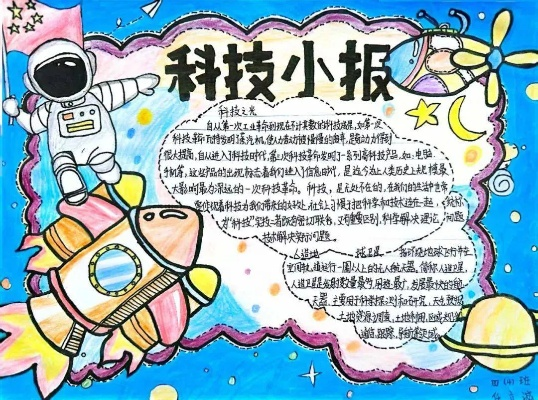 科技小报
科技之光
自从第一次工业革命到现在不计其数的科技涌现,如第一次
科技革命瓦特发明蒸汽机,使人力
很大提高,自从进入了科技时代,第三次科技革命发明了一系列高科技产品,如:电脑、
手机等,这些产品的出现标志着我们进入了信息时代,是迄今为止人类历史上规模最
大影响最为深远的一次科技革命。科技,是无处不在的,在我们的生活中非常
科技为我们带来的好处,社会上习惯于把科学和技术连在一起,
为“科技”实技一着既有密切联系,又有重要区别,科学解决理论问题
技术解决实际问题。
人造地 球卫星 指环绕地球飞行并在
空间轨道运行一圈以上的无人航天器。简称人造卫星。
人造卫星是发射数量最多,用途最广,发展最快的航
天器。主要用于科学探测和研究,天气预报
土地资源调查,土地利用,区域规划
通信,跟踪,导航等领域。
四(1)班